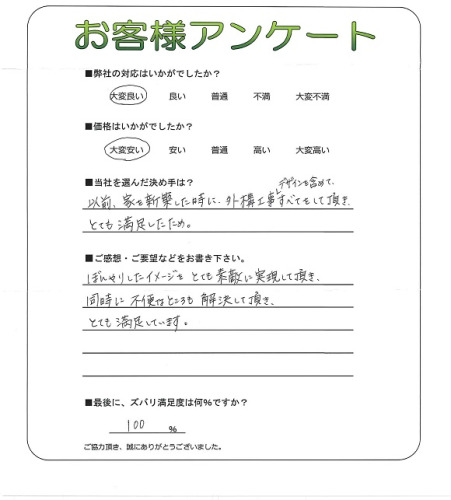 お客様アンケート
■弊社の対応はいかがでしたか?
大変良い 良い 普通 不満 大変不満
■価格はいかがでしたか?
大変安い 安い 普通 高い 大変高い
■当社を選んだ決め手は?
デザインを含めて、
以前、家を新築した時に、外構工事すべてをして頂き、
とても満足したため。
■ご感想・ご要望などをお書き下さい。
ぼんやりしたイメージをとても素敵に実現して頂き、
同時に不便なところも解決して頂き、
とても満足しています。
■最後に、ズバリ満足度は何%ですか?
100 %
ご協力頂き、誠にありがとうございました。